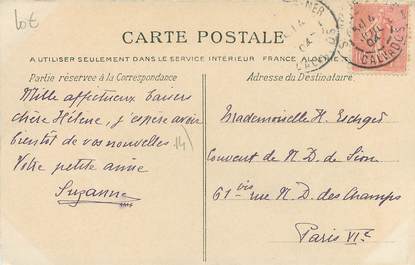 lot
CARTE POSTALE
A UTILISER SEULEMENT DANS LE SERVICE INTERIEUR FRANCE ALGERIE
Partie réservée à la Correspondance
Adresse du Destinataire
Mille affectueux baisers
chère Hélène, j'espère avoir
bientôt de vos nouvelles
Votre petite amie
Suzanne
14
Mademoiselle H.
Couvent de N. D. de Sion
61 bis rue N. D. des Champs
Paris VIe
04
CALVADOS